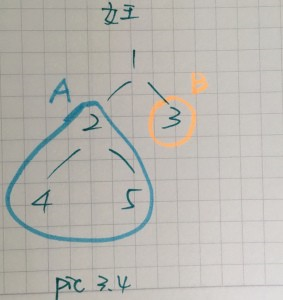 女王
1
A
B
2
3
4 5
pic 3.4